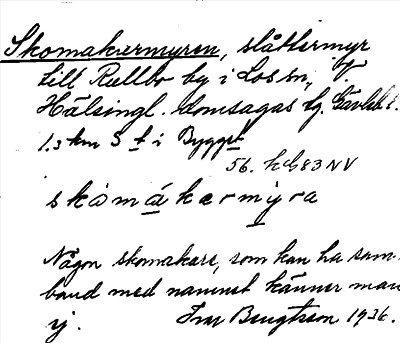 Skomakermyren, slåttermyr
till Rullbo by i Los sn,
Hälsingl. domsagas tg. Gävleb. l.
1.3 km S t i Bygget
56. kG83NV
skòmákærmỳra
Någon skomakare, som kan ha sam-
band med namnet känner man
ej. Ivar Bengtsson 1936.